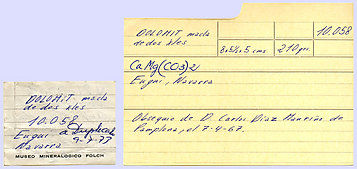 DOLOMIT macla
de dos ales
10.058
Eugui a Duplicado
Navarra 9-7-77
MUSEO MINERALOGICO FOLCH
DOLOMIT macla
de dos ales
10.058
8x5½x5 cms
210 grs.
Ca Mg (CO3)2
Eugui, Navarra
Obsequio de D. Carlos Diaz Mauriño de
Pamplona, el 7-4-67.